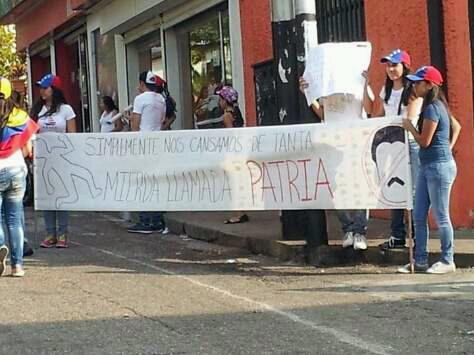 SIMPLEMENTE NOS CANSAMOS DE TANTA
MIERDA LLAMADA PATRIA